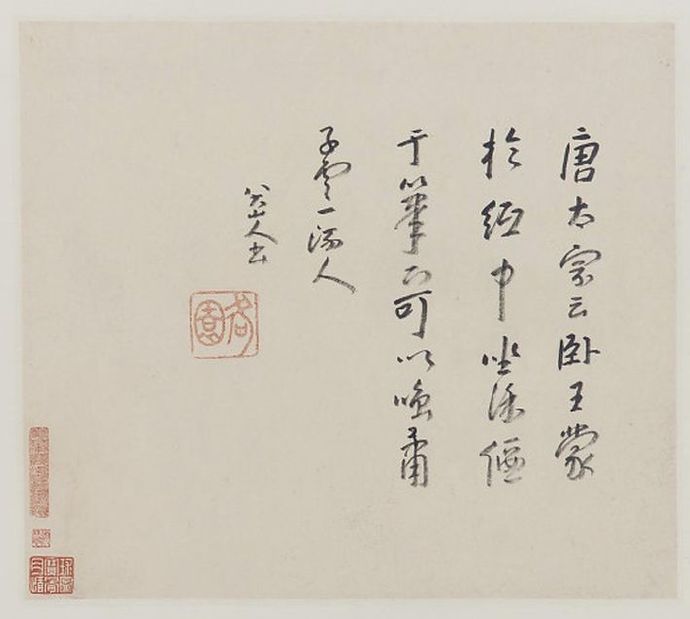 唐太宗云卧王蒙
於紙中坐徐偃
于筆下可以嗤蕭
子雲一流人
八大山人書
何園